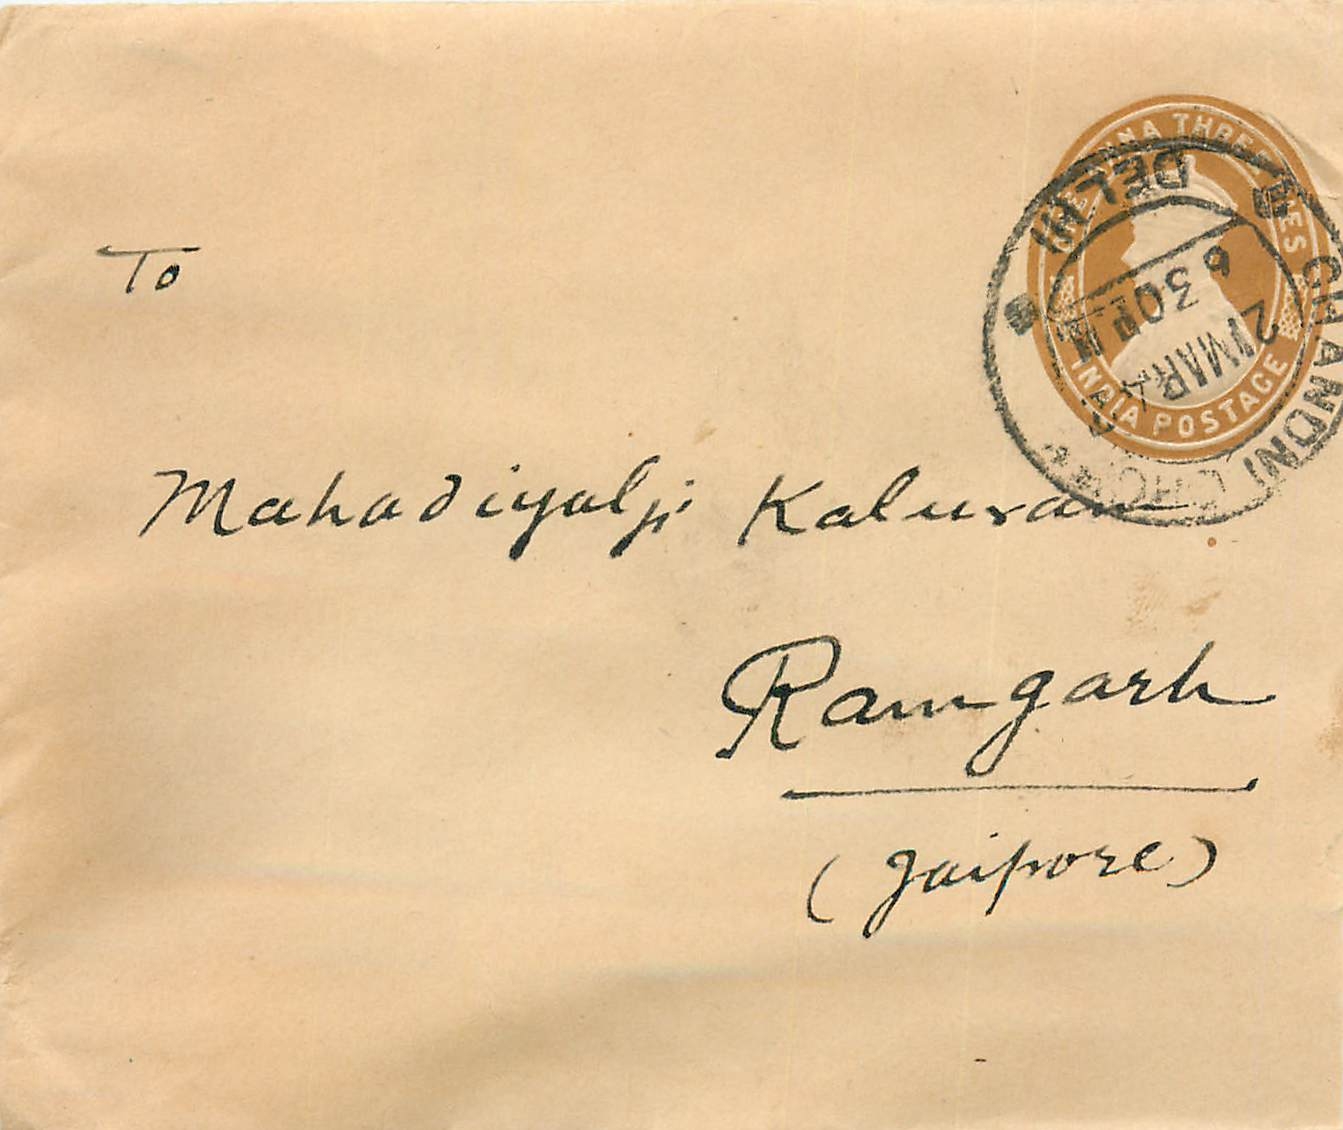 ONE ANNA THREE PIES
INDIA POSTAGE
CHANDNI CHOWK
DELHI
6 30 P M
21 MAR 4
To
Mahadiyalji Kaluram
Ramgarh
(Jaipore)